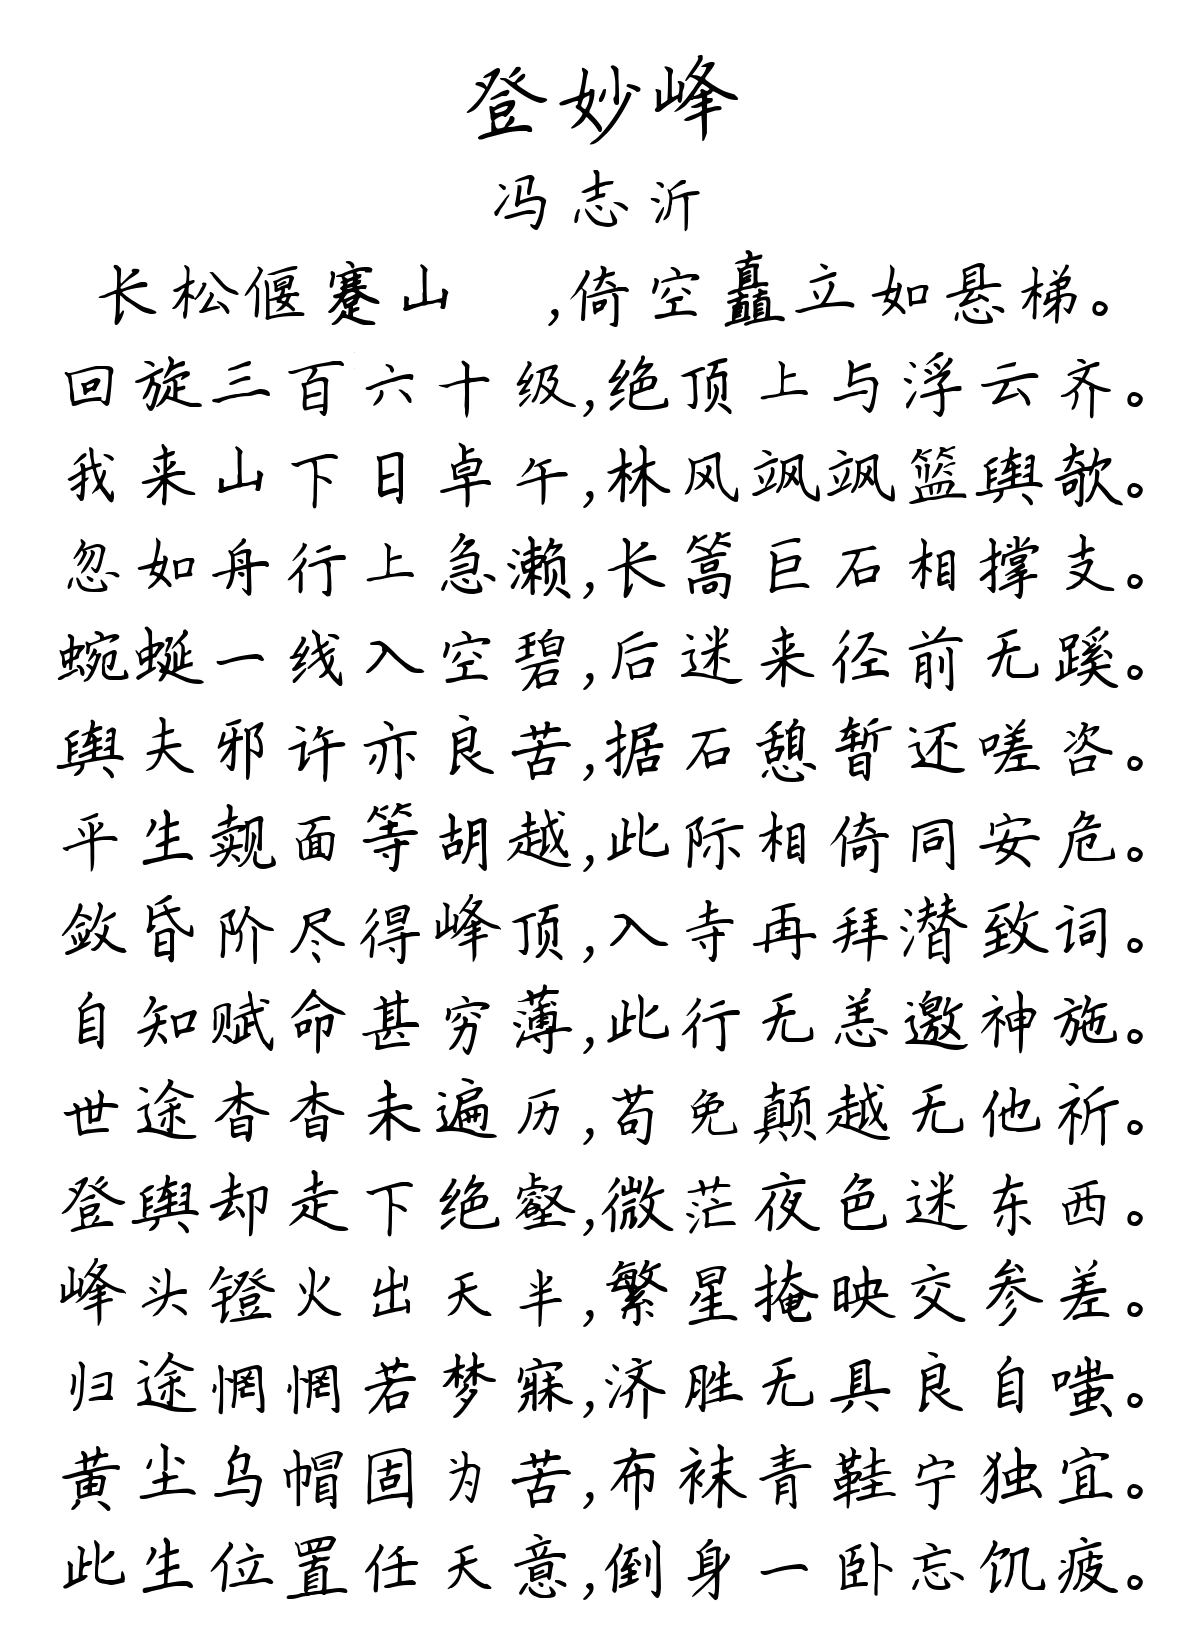 登妙峰
冯志沂
长松偃蹇山 ,倚空矗立如悬梯。
回旋三百六十级,绝顶上与浮云齐。
我来山下日卓午,林风飒飒篮舆欹。
忽如舟行上急濑,长篙巨石相撑支。
蜿蜒一线入空碧,后迷来径前无蹊。
舆夫邪许亦良苦,据石憩暂还嗟咨。
平生觌面等胡越,此际相倚同安危。
敛昏阶尽得峰顶,入寺再拜潜致词。
自知赋命甚穷薄,此行无恙邀神施。
世途杳杳未遍历,苟免颠越无他祈。
登舆却走下绝壑,微茫夜色迷东西。
峰头镫火出天半,繁星掩映交参差。
归途惘惘若梦寐,济胜无具良自嗤。
黄尘乌帽固为苦,布袜青鞋宁独宜。
此生位置任天意,倒身一卧忘饥疲。